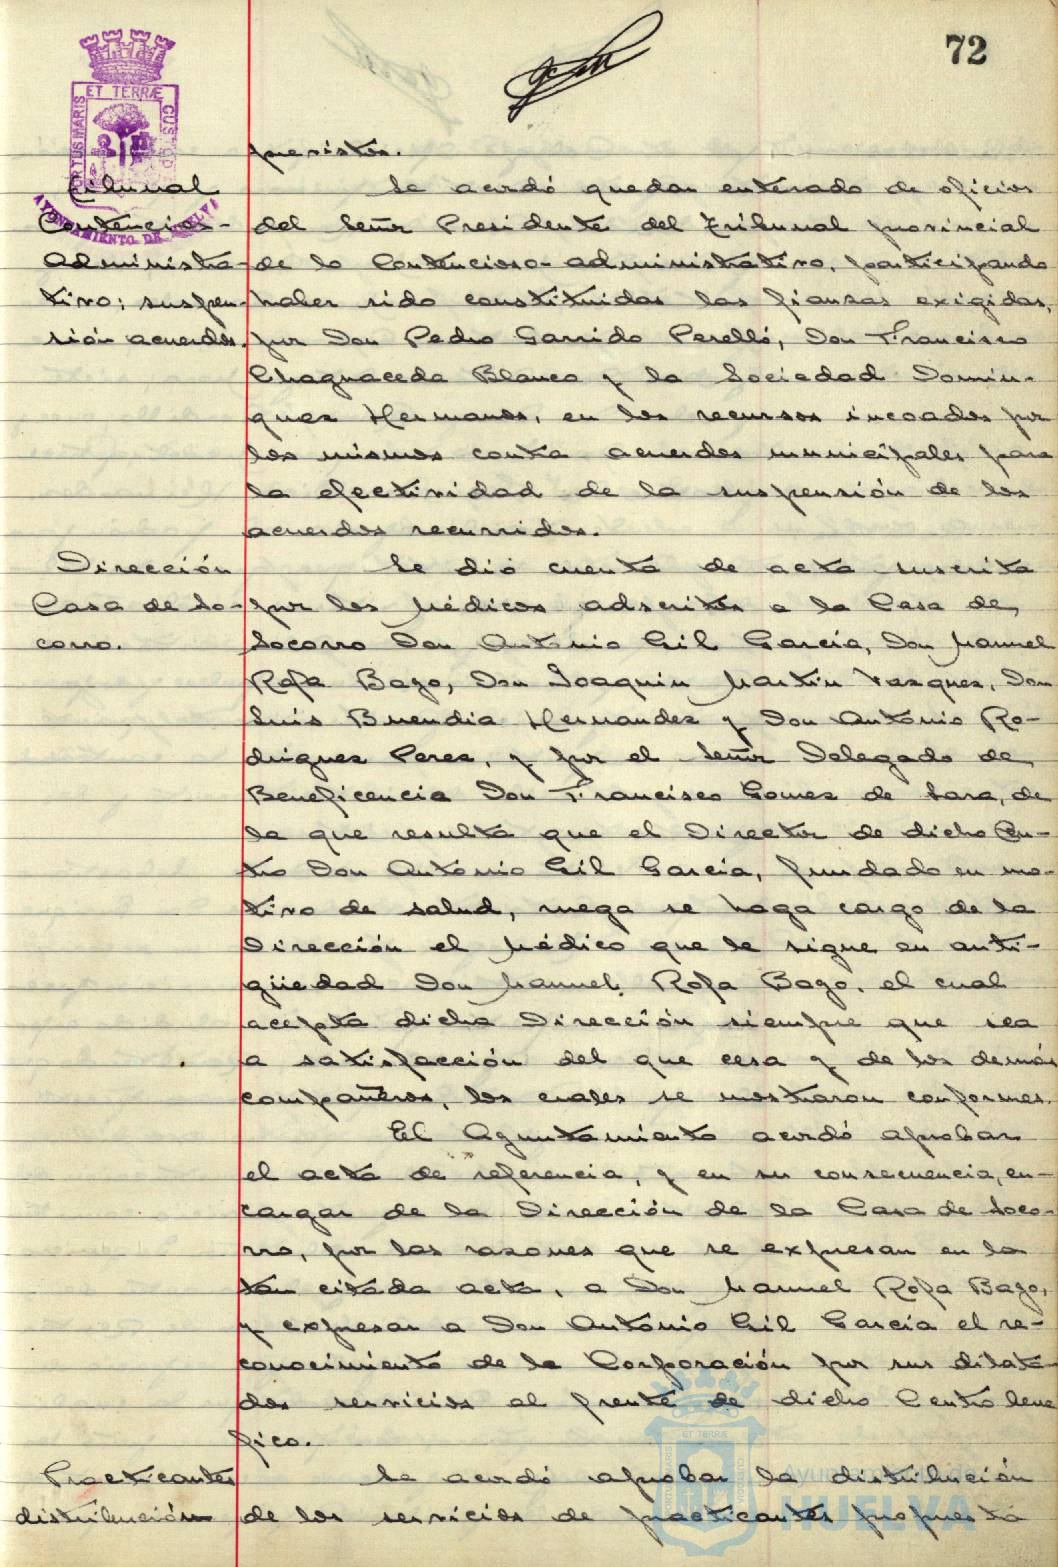 72
ET TERRÆ
PORTUS MARIS
CUSTODIA
AYUNTAMIENTO DE HUELVA
Tribunal
Contencioso-
Administra-
tivo; suspen-
sión acuerdos.
Se acordó quedar enterado de oficios
del Señor Presidente del Tribunal provincial
de lo Contencioso-administrativo, participando
haber sido constituidas las fianzas exigidas,
por Don Pedro Garrido Perelló, Don Francisco
Chaguaceda Blanco y la Sociedad Domin-
guez Hermanos, en los recursos incoados por
los mismos contra acuerdos municipales para
la efectividad de la suspensión de los
acuerdos recurridos.
Dirección
Casa de So-
corro.
Se dió cuenta de acta suscrita
por los Médicos adscritos a la Casa de
Socorro Don Antonio Gil García, Don Manuel
Rofa Bago, Don Joaquin Martin Vazquez, Don
Luis Buendia Hernandez y Don Antonio Ro-
driguez Perez, y por el Señor Delegado de
Beneficencia Don Francisco Gomez de Lara, de
la que resulta que el Director de dicho Cen-
tro Don Antonio Gil Garcia, fundado en mo-
tivo de salud, ruega se haga cargo de la
Dirección el Médico que le sigue en anti-
güedad Don Manuel Rofa Bago, el cual
acepta dicha Dirección siempre que sea
a satisfacción del que cesa y de los demás
compañeros, los cuales se mostraron conformes.
El Ayuntamiento acordó aprobar
el acta de referencia, y en su consecuencia, en-
cargar de la Dirección de la Casa de Soco-
rro, por las razones que se expresan en la
tan citada acta, a Don Manuel Rofa Bago,
y expresar a Don Antonio Gil García el re-
conocimiento de la Corporación por sus dilata-
dos servicios al frente de dicho Centro bene
fico.
Practicantes
distribución
Se acordó aprobar la distribución
de los servicios de practicantes propuesta
Ayuntamiento de
HUELVA